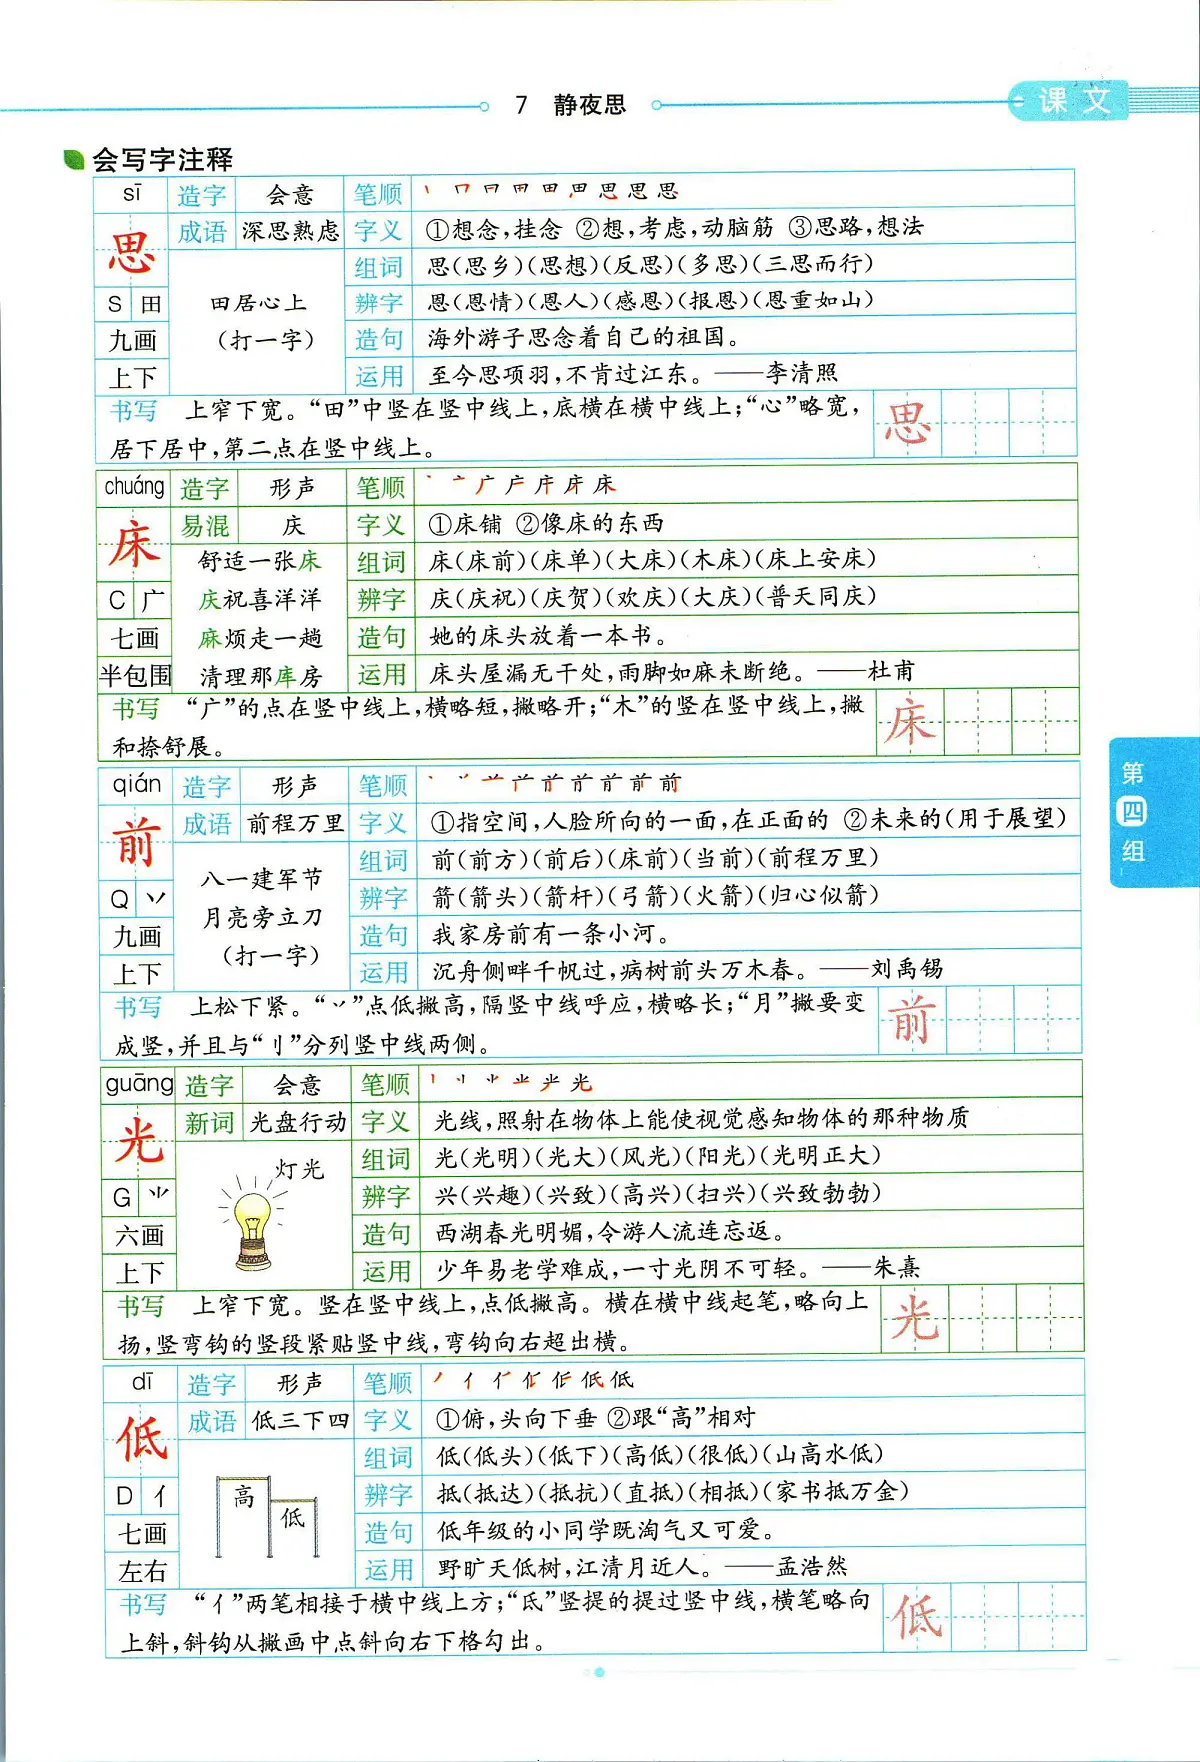 7 静夜思
课文
会写字注释
sī 造字 会意 笔顺 丶 口 曰 甲 田 田 思 思 思
思 成语 深思熟虑 字义 ①想念,挂念 ②想,考虑,动脑筋 ③思路,想法
组词 思(思乡)(思想)(反思)(多思)(三思而行)
S 田 田居心上 辨字 恩(恩情)(恩人)(感恩)(报恩)(恩重如山)
九画 (打一字) 造句 海外游子思念着自己的祖国。
上下 运用 至今思项羽,不肯过江东。——李清照
书写 上窄下宽。“田”中竖在竖中线上,底横在横中线上;“心”略宽, 思
居下居中,第二点在竖中线上。
chuáng 造字 形声 笔顺 床
床 易混 庆 字义 ①床铺 ②像床的东西
舒适一张床 组词 床(床前)(床单)(大床)(木床)(床上安床)
C 广 庆祝喜洋洋 辨字 庆(庆祝)(庆贺)(欢庆)(大庆)(普天同庆)
七画 麻烦走一趟 造句 她的床头放着一本书。
半包围 清理那库房 运用 床头屋漏无干处,雨脚如麻未断绝。——杜甫
书写 “广”的点在竖中线上,横略短,撇略开;“木”的竖在竖中线上,撇 床
和捺舒展。
qián 造字 形声 笔顺 前
前 成语 前程万里 字义 ①指空间,人脸所向的一面,在正面的 ②未来的(用于展望)
组词 前(前方)(前后)(床前)(当前)(前程万里)
Q 丷 八一建军节 辨字 箭(箭头)(箭杆)(弓箭)(火箭)(归心似箭)
九画 月亮旁立刀 造句 我家房前有一条小河。
上下 (打一字) 运用 沉舟侧畔千帆过,病树前头万木春。——刘禹锡
书写 上松下紧。“丷”点低撇高,隔竖中线呼应,横略长;“月”撇要变 前
成竖,并且与“刂”分列竖中线两侧。
guāng 造字 会意 笔顺 光
光 新词 光盘行动 字义 光线,照射在物体上能使视觉感知物体的那种物质
灯光 组词 光(光明)(光大)(风光)(阳光)(光明正大)
G ⺌ 辨字 兴(兴趣)(兴致)(高兴)(扫兴)(兴致勃勃)
六画 造句 西湖春光明媚,令游人流连忘返。
上下 运用 少年易老学难成,一寸光阴不可轻。——朱熹
书写 上窄下宽。竖在竖中线上,点低撇高。横在横中线起笔,略向上 光
扬,竖弯钩的竖段紧贴竖中线,弯钩向右超出横。
dī 造字 形声 笔顺 低
低 成语 低三下四 字义 ①俯,头向下垂 ②跟“高”相对
组词 低(低头)(低下)(高低)(很低)(山高水低)
D 亻 高 低 辨字 抵(抵达)(抵抗)(直抵)(相抵)(家书抵万金)
七画 造句 低年级的小同学既淘气又可爱。
左右 运用 野旷天低树,江清月近人。——孟浩然
书写 “亻”两笔相接于横中线上方;“氐”竖提的提过竖中线,横笔略向 低
上斜,斜钩从撇画中点斜向右下格勾出。
第四组